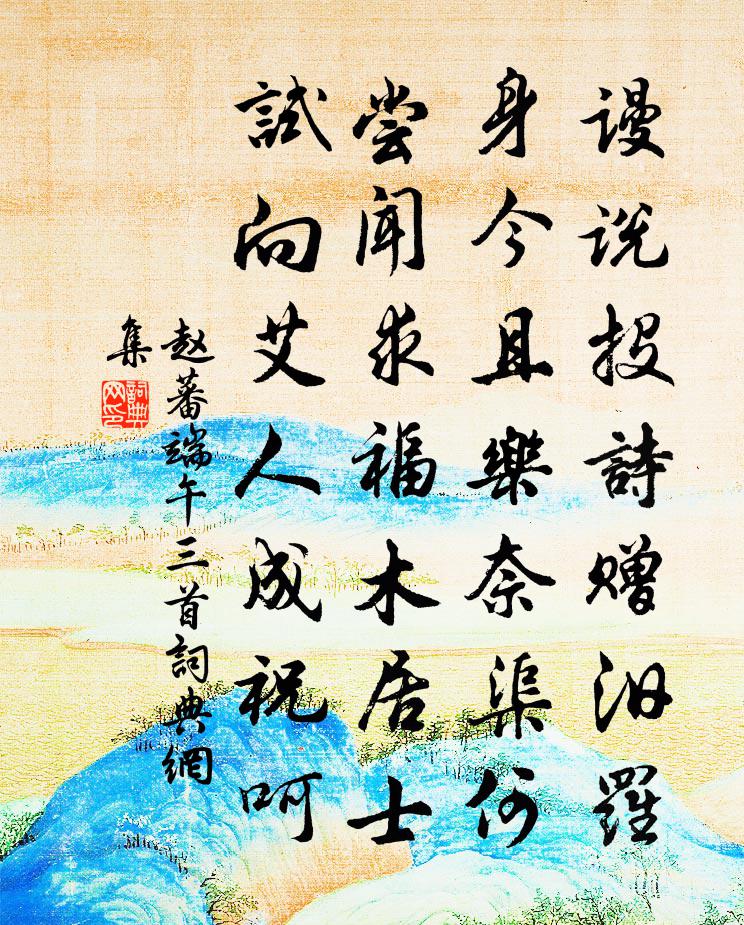 谩说投詩赠汨羅
身今且樂奈渠何
尝闻求福木居士
試向艾人成祝呵
赵蕃端午三首詞典網
集
詞典
网印